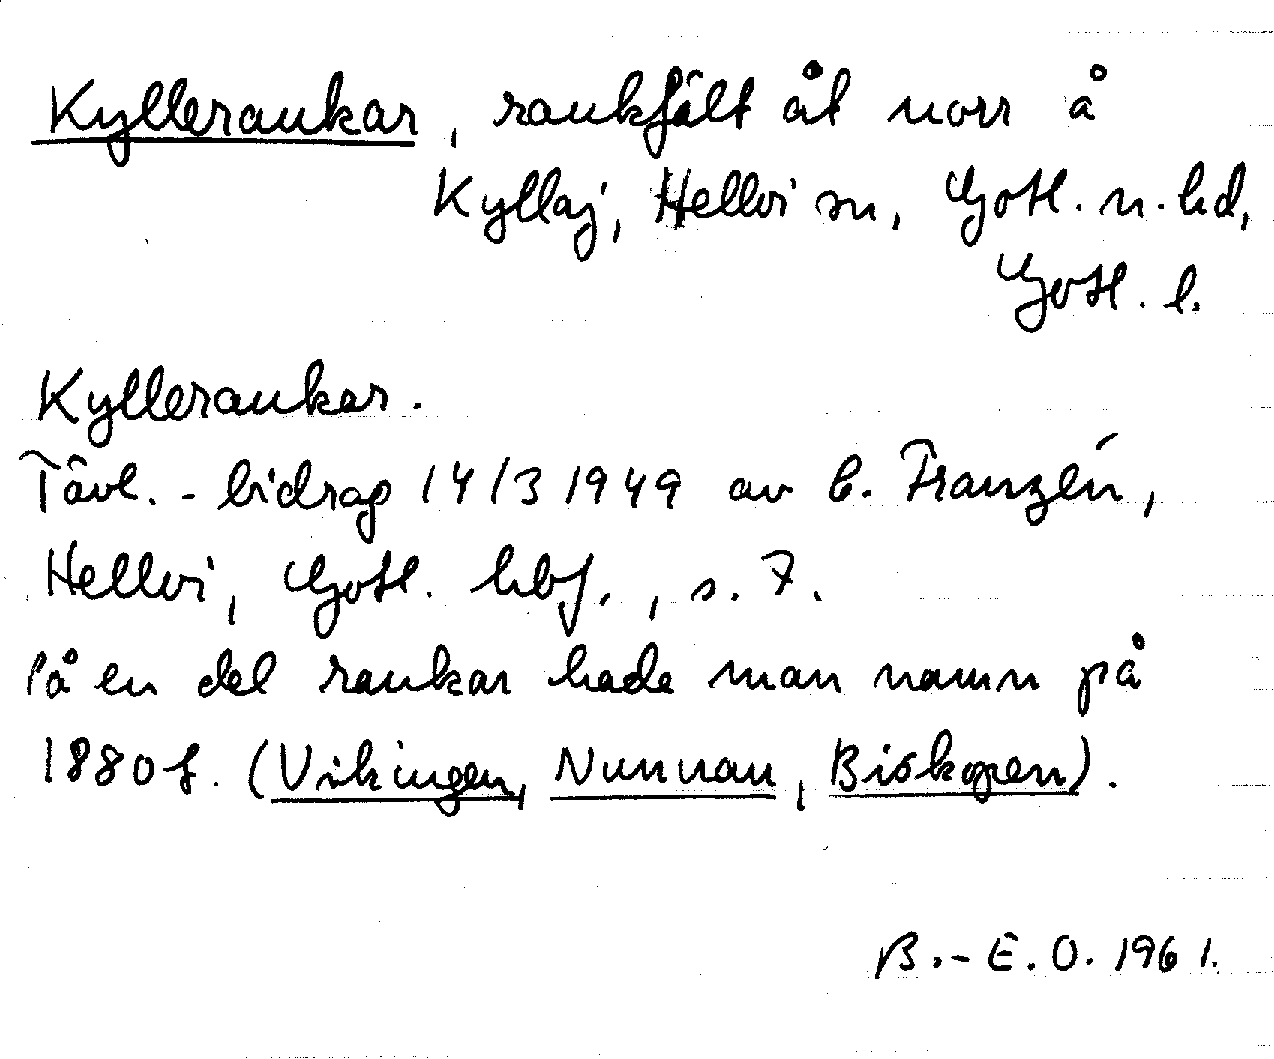 Kylleraukar, raukfält åt norr å
Kyllaj, Hellvi sn, Gotl. n. hd,
Gotl. l.
Kylleraukar.
Tävl.-bidrag 14/3 1949 av C. Franzén,
Hellvi, Gotl. hbf., s. 7.
På en del raukar hade man namn på
1880t. (Vikingen, Nunnan, Biskopen).
B.-E.O. 1961.